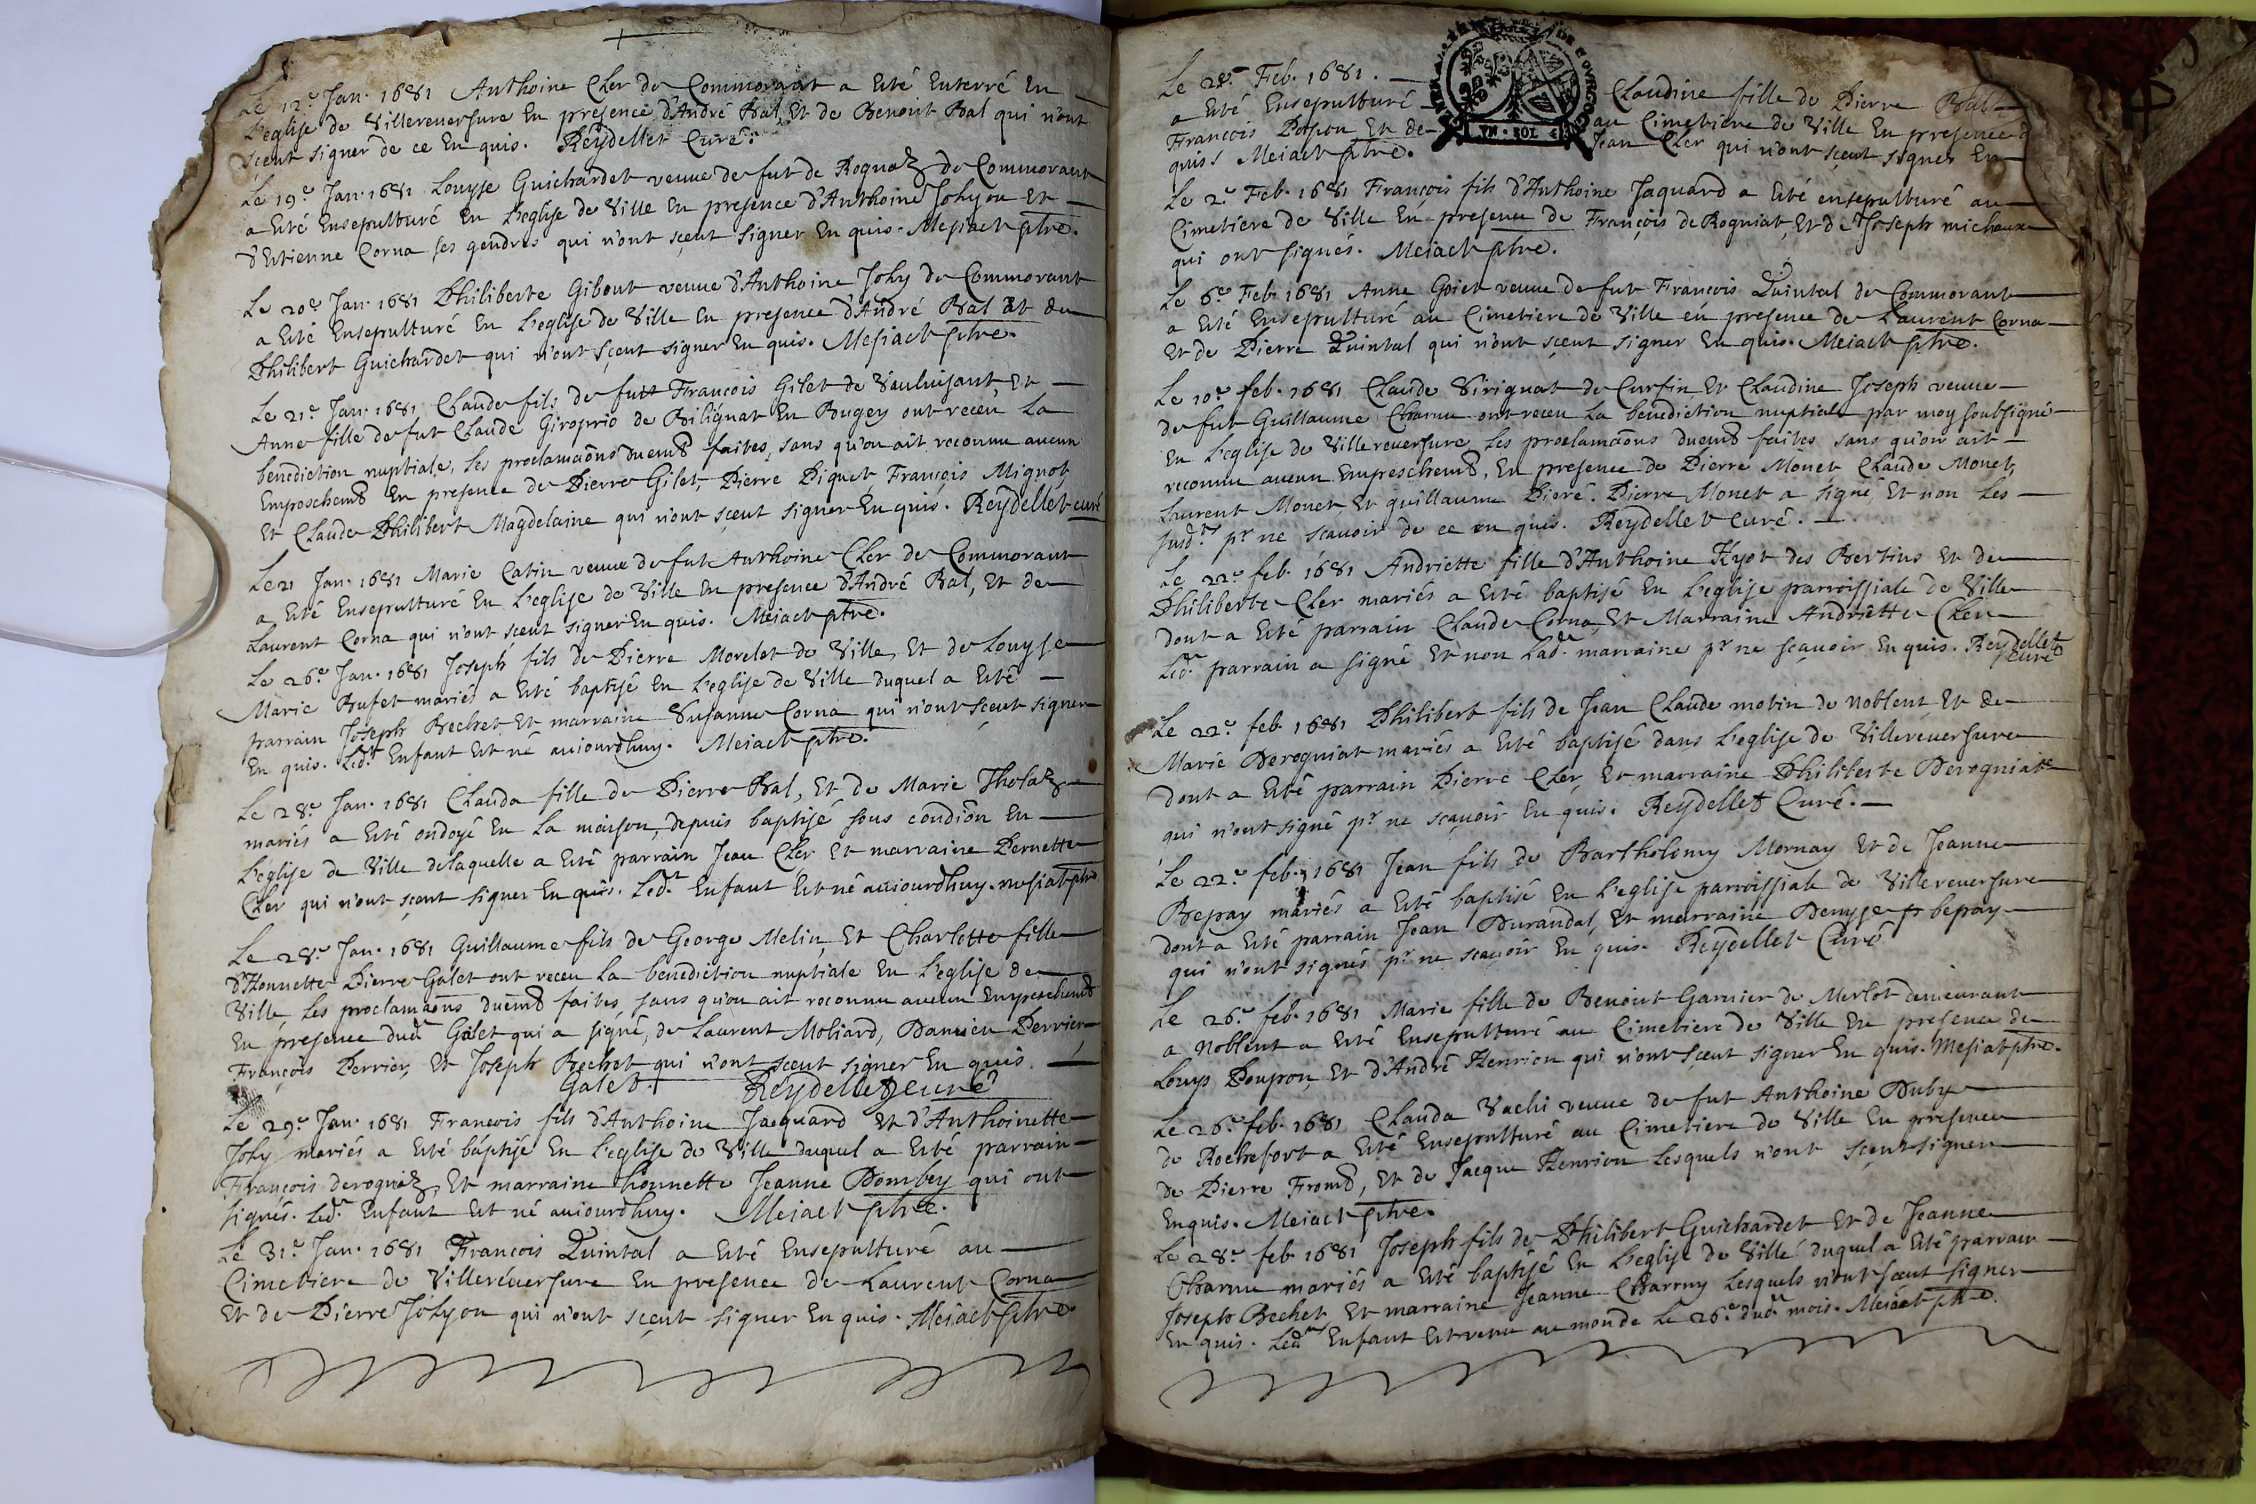 Le 12e Jan. 1681 Anthoine Cler de Commorant a Eté Enterré En
L'eglise de Villereuersure En presence d'André Bal, Et de Benoit Bal qui n'ont
sçeut signer de ce En quis. Reydellet Curé.
Le 19e Jan. 1681 Louyse Guichardet veuue de fut de Rognaz de Commorant
a Eté Ensepulturé En L'eglise de Ville En presence d'Anthoine Johyon Et
d'Etienne Corna ses gendres qui n'ont sçeut signer En quis. Mesiact ptre.
Le 20e Jan. 1681 Philiberte Gibout veuue d'Anthoine Johy de Commorant
a Eté Ensepulturé En L'eglise de Ville En presence d'André Bal Et de
Philibert Guichardet qui n'ont sçeut signer En quis. Mesiact ptre.
Le 21e Jan. 1681 Claude fils de fut François Gilet de Vauluisant, Et
Anne fille de fut Claude Giroprio de Bilignat En Bugey ont receu La
benediction nuptiale, les proclamaõns duemt faites, sans qu'on ait reconnu aucun
Empeschemt En presence de Pierre Gilet, Pierre Piquet François Mignot,
Et Claude Philibert Magdelaine qui n'ont sçeut signer En quis. Reydellet curé
Le 21 Jan. 1681 Marie Catin veuue de fut Anthoine Cler de Commorant
a Eté Ensepulturé En L'eglise de Ville En presence d'André Bal, Et de
Laurent Corna qui n'ont sçeut signer En quis. Meiact ptre.
Le 26e Jan. 1681 Joseph fils de Pierre Morelet de Ville, Et de Louyse
Marie Bufet mariés a Eté baptisé En L'eglise de Ville duquel a Eté
parrain Joseph Bechet Et marraine Susanne Corna qui n'ont sçeut signer
En quis. Ledt Enfant Est né auiourdhuy. Meiact ptre.
Le 28e Jan. 1681 Clauda fille de Pierre Bal, Et de Marie Tholaz
mariés a Eté ondoyé En la maison, depuis baptisé sous condiõn En
L'eglise de Ville delaquelle a Eté parrain Jean Cler Et marraine Pernette
Cler qui n'ont sçeut signer En quis. Ledt Enfant Est né auiourdhuy. Mesiat ptre
Le 28e Jan. 1681 Guillaume fils de George Melin, Et Charlotte fille
d'Honnette Pierre Galet ont receu La benediction nuptiale En L'eglise de
Ville, les proclamaõns duemt faites, sans qu'on ait reconnu aucun Empeschemt
En presence dud Galet qui a signé, de Laurent Moliard, Damien Perrier,
François Perrier, Et Joseph Bechet qui n'ont sçeut signer En quis.
Galet. Reydellet curé
Le 29e Jan. 1681 François fils d'Anthoine Jaquard Et d'Anthoinette
Johy mariés a Eté baptisé En L'eglise de Ville duquel a Eté parrain
François derognaz, Et marraine honnette Jeanne Dombey qui ont
signés. Led. Enfant Est né auiourdhuy. Meiact ptre.
Le 31e Jan. 1681 François Quintal a Eté Ensepulturé au
Cimetiere de Villereuersure En presence de Laurent Corna
Et de Pierre Johyon qui n'ont sçeut signer En quis. Meiact ptre.
Le Feb. 1681. Claudine fille de Pierre Bal
a Eté Ensepulturé au Cimetiere de Ville En presence d
François Et de Jean Cler qui n'ont sçeut signer En
quis Meiact ptre.
VN SOL
Le 2e Feb. 1681 François fils d'Anthoine Jaquard a Eté ensepulturé au
Cimetiere de Ville En presence de François de Rogniat, Et de Joseph michaux
qui ont signés. Meiact ptre.
Le 6e Feb. 1681 Anne Goiet veuue de fut François Quintal de Commorant
a Eté Ensepulturé au Cimetiere de Ville en presence de Laurent Corna
Et de Pierre Quintal qui n'ont sçeut signer En quis. Meiact ptre.
Le 10e feb. 1681 Claude Virignat de Curfin Et Claudine Joseph veuue
de fut Guillaume Charnu ont receu La benediction nuptiale par moy soubsigné
En L'eglise de Villereuersure les proclamaõns duemt faites sans qu'on ait
reconnu aucun Empeschemt, En presence de Pierre Monet Claude Monet,
Laurent Monet Et guillaume Pioré. Pierre Monet a signé, Et non les
susd.ts pr ne scauoir de ce en quis. Reydellet Curé.
Le 22e feb. 1681 Andriette fille d'Anthoine Hyot des Bertins Et de
Philiberte Cler mariés a Eté baptisé En L'eglise parroissiale de Ville
dont a Eté parrain Claude Corna, Et Marraine Andriette Cler
Led. parrain a signé Et non Lad. marraine pr ne sçauoir En quis. Reydellet
curé
Le 22e feb. 1681 Philibert fils de Jean Claude mobin de noblent Et de
Marie Derogniat mariés a Eté baptisé dans L'eglise de Villereuersure
dont a Eté parrain Pierre Cler, Et marraine Philiberte Derogniat
qui n'ont signé pr ne sçauoir En quis. Reydellet Curé.
Le 22e feb. 1681 Jean fils de Bartholomy Mornay Et de Jeanne
Bepay mariés a Eté baptisé En L'eglise parroissiale de Villereuersure
dont a Eté parrain Jean Durandal, Et marraine Denyse bepay
qui n'ont signés pr ne sçauoir En quis. Reydellet Curé
Le 26e feb. 1681 Marie fille de Benoit Garnier de Merlot demeurant
a Noblent a Eté Ensepulturé au Cimetiere de Ville En presence de
Louys Poupon, Et d'André Henrion qui n'ont sçeut signer En quis. Mesiat ptre.
Le 26e feb. 1681 Clauda Vachi veuue de fut Anthoine Duby
de Rochefort a Eté Ensepulturé au Cimetiere de Ville En presence
de Pierre Fromt, Et de Jacque Henrion Lesquels n'ont sçeut signer
En quis. Meiact ptre.
Le 28e feb. 1681 Joseph fils de Philibert Guichardet Et de Jeanne
Charnu mariés a Eté baptisé En L'eglise de Ville duquel a Eté parrain
Joseph Bechet Et marraine Jeanne Charnu Lesquels n'ont sçeut signer
En quis. Led. Enfant Est venu au monde Le 26e dud. mois. Meiact ptre.